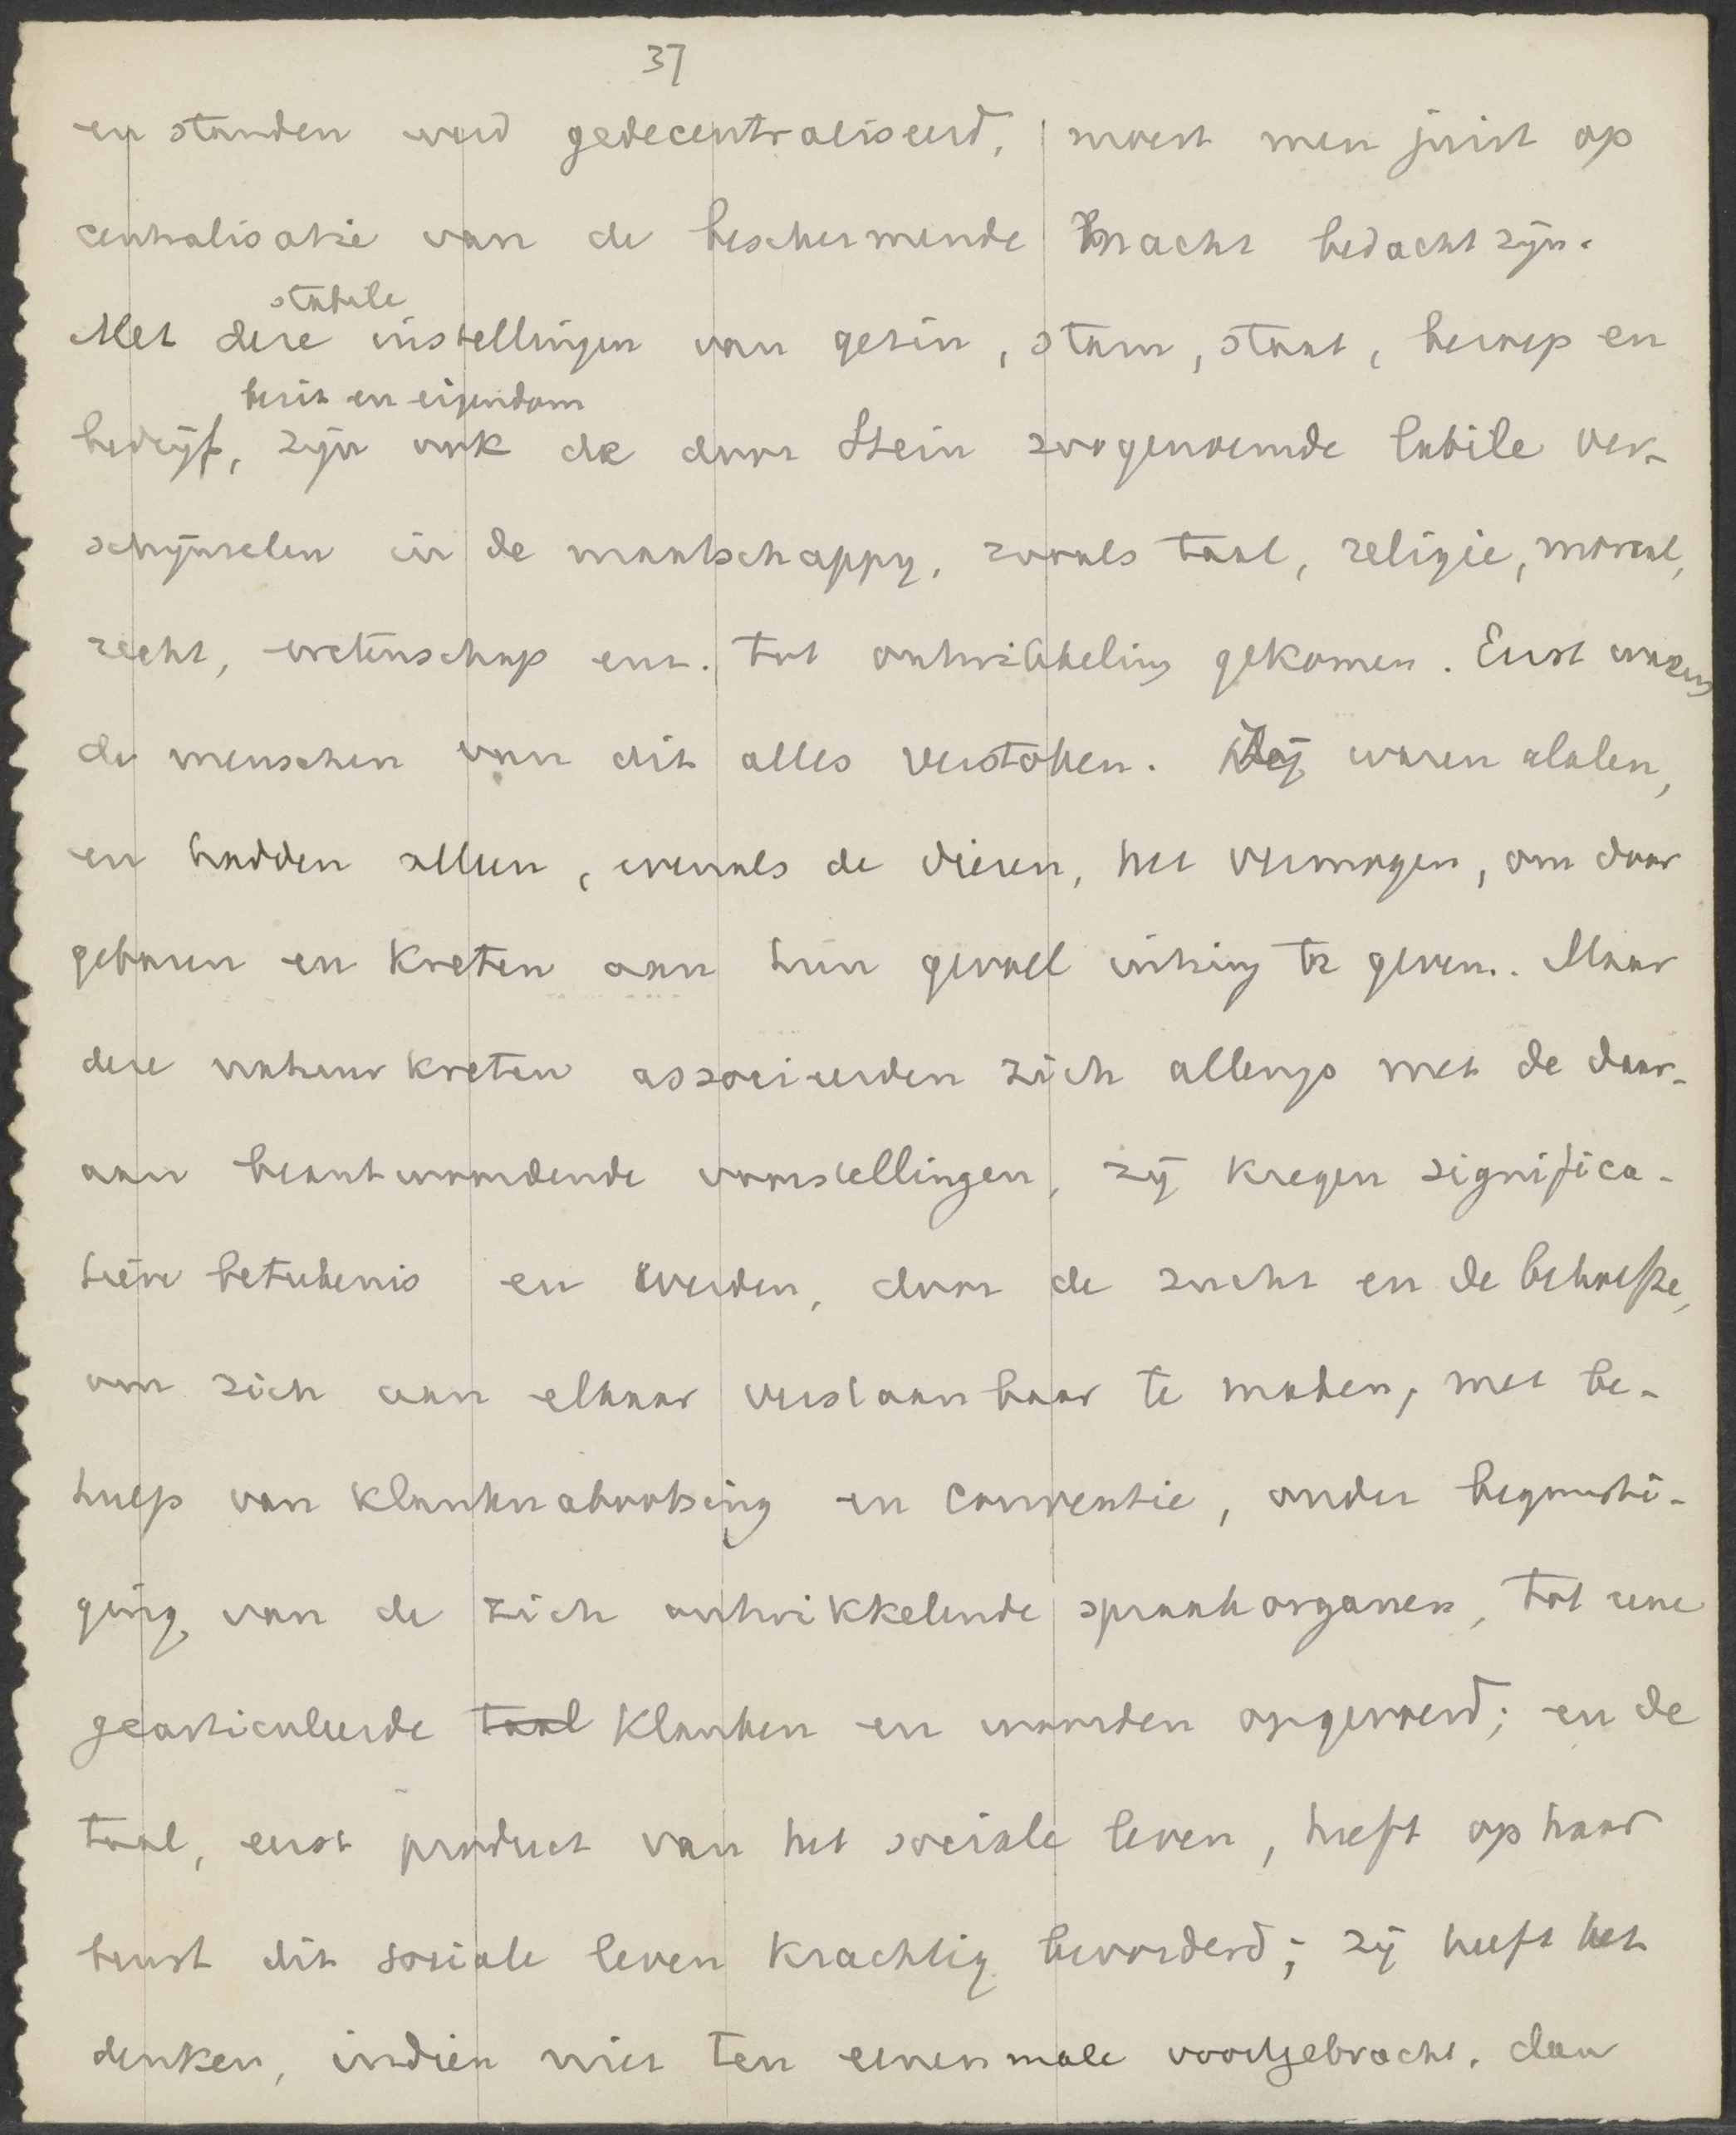 37
en standen werd gedecentraliseerd, moest men juist op
centralisatie van de beschermende macht bedacht zijn.
stabile
Met deze instellingen van gezin, stam, staat, beroep en
bezit en eigendom
bedrijf, zijn ook de door Stein zoogenoemde labile ver-
schijnselen in de maatschappij, zooals taal, religie, moraal,
recht, wetenschap enz. tot ontwikkeling gekomen. Eerst waren
de menschen van dit alles verstoken. Zij waren alalen,
en hadden alleen, evenals de dieren, het vermogen, om door
gebaren en kreten aan hun gevoel uiting te geven. Maar
deze natuurkreten associeerden zich allengs met de daar-
aan beantwoordende voorstellingen, zij kregen significa-
tieve beteekenis en werden, door de zucht en de behoefte,
om zich aan elkaar verstaanbaar te maken, met be-
hulp van klanknabootsing en conventie, onder begunsti-
ging van de zich ontwikkelende spraakorganen, tot eene
gearticuleerde taal klanken en woorden opgevoerd; en de
taal, eerst product van het sociale leven, heeft op haar
beurt dit sociale leven krachtig bevorderd; zij heeft het
denken, indien niet ten eenenmale voortgebracht, dan